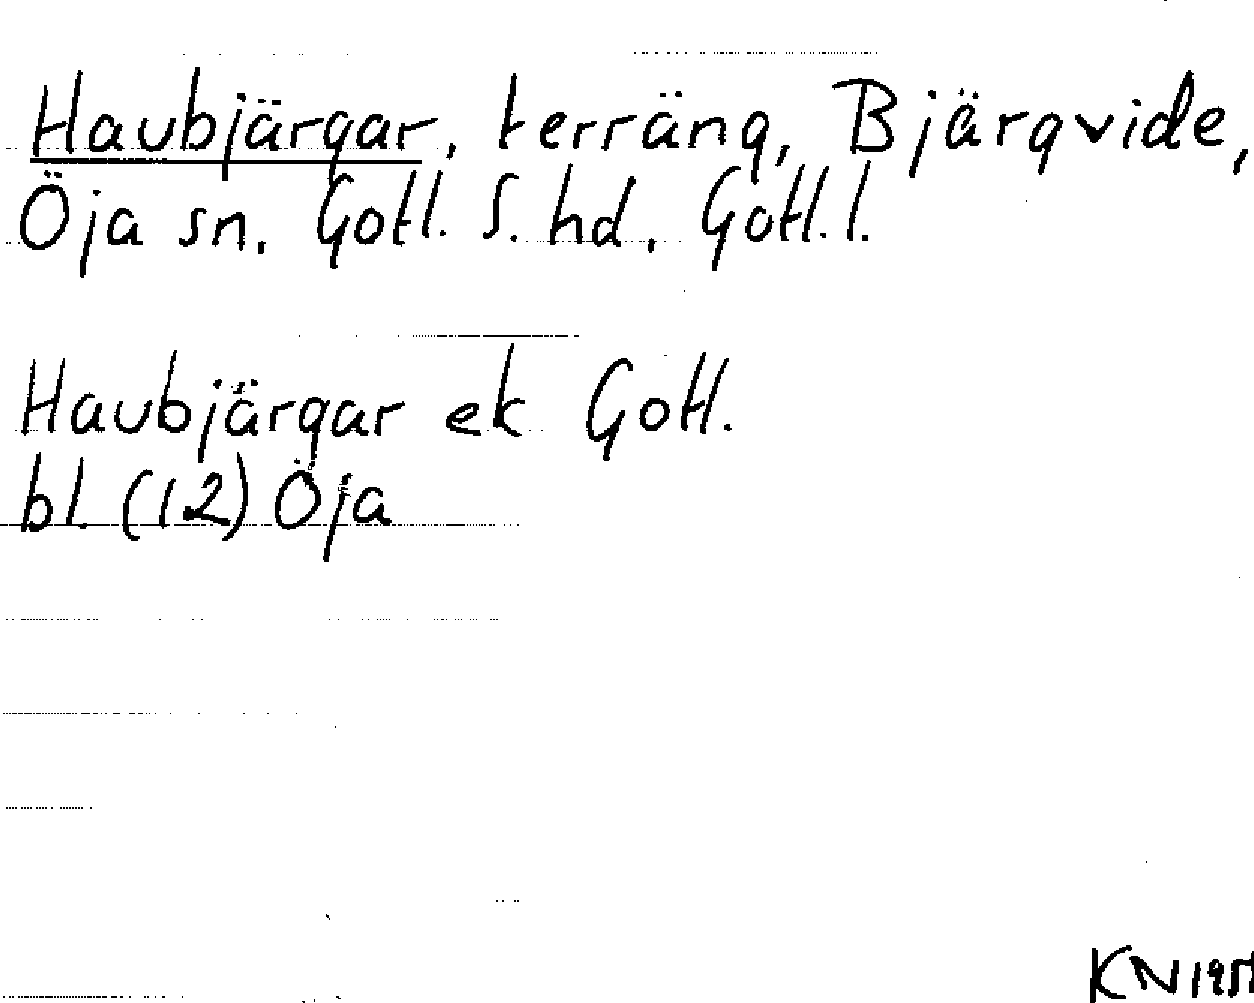 Haubjärgar, terräng, Bjärgvide,
Öja sn. Gotl. S. hd. Gotl. l.
Haubjärgar ek Gotl.
bl. (12) Öja
KN 1951